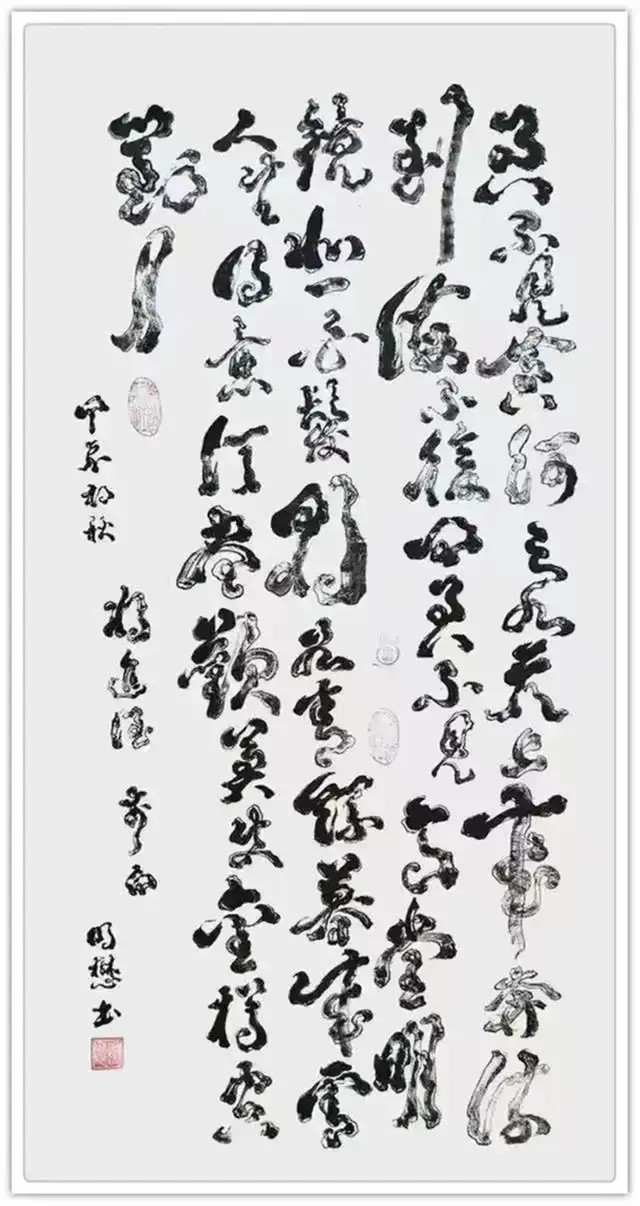 君不見黄河之水天上來奔流
到海不復回君不見高堂明
鏡悲白髮朝如青絲暮成雪
人生得意須盡歡莫使金樽空
對月
甲辰初秋 將進酒 明懋书